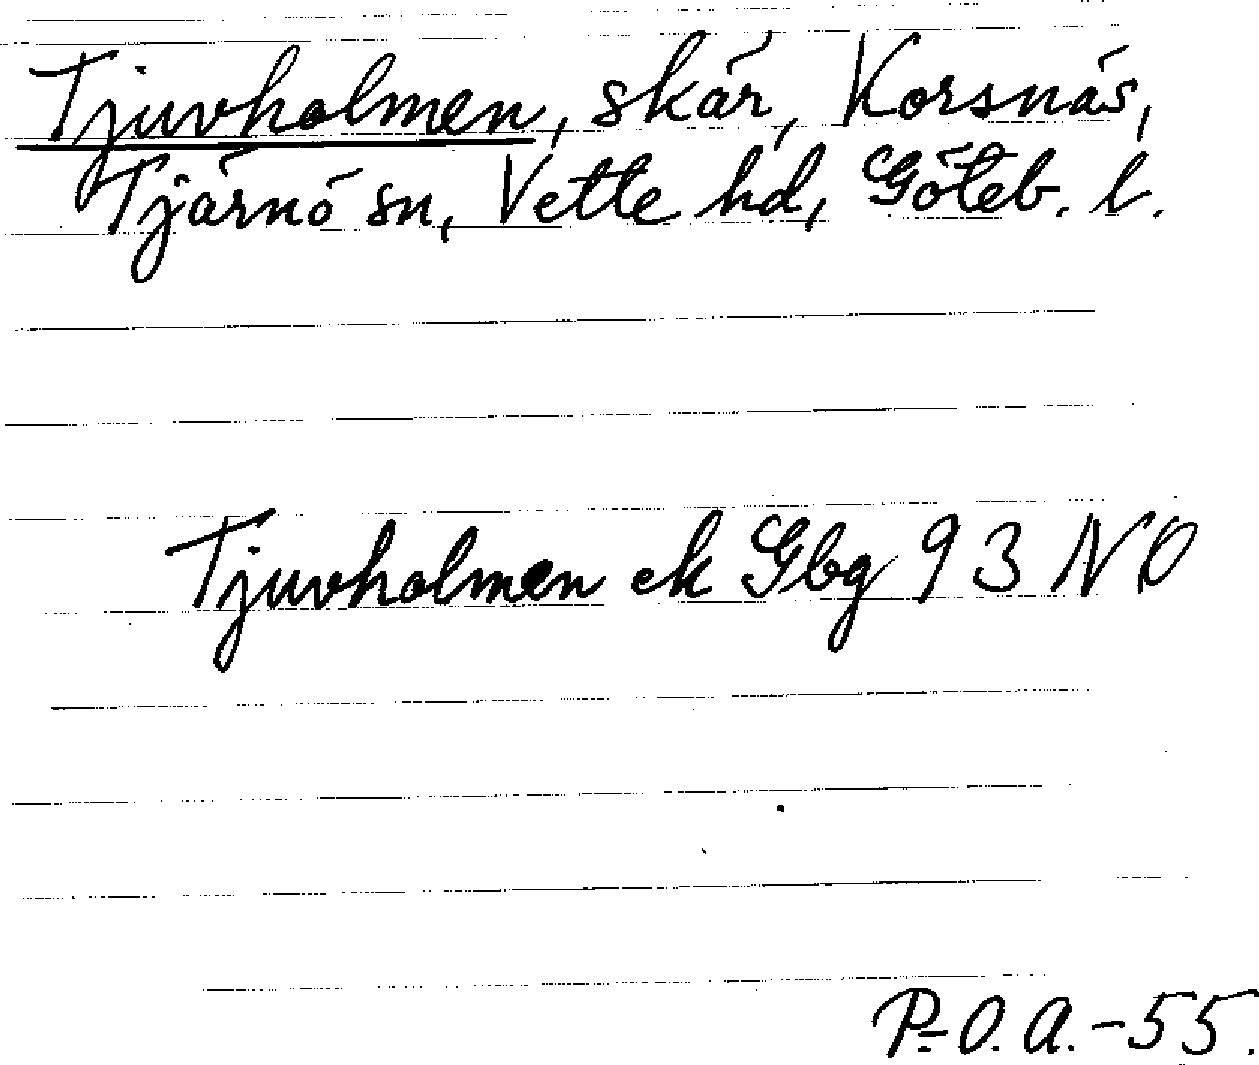 Tjuvholmen, skär, Korsnäs,
Tjärnö sn, Vette hd, Göteb. l.
Tjuvholmen ek Gbg 93 NO
P-O.A.-55.